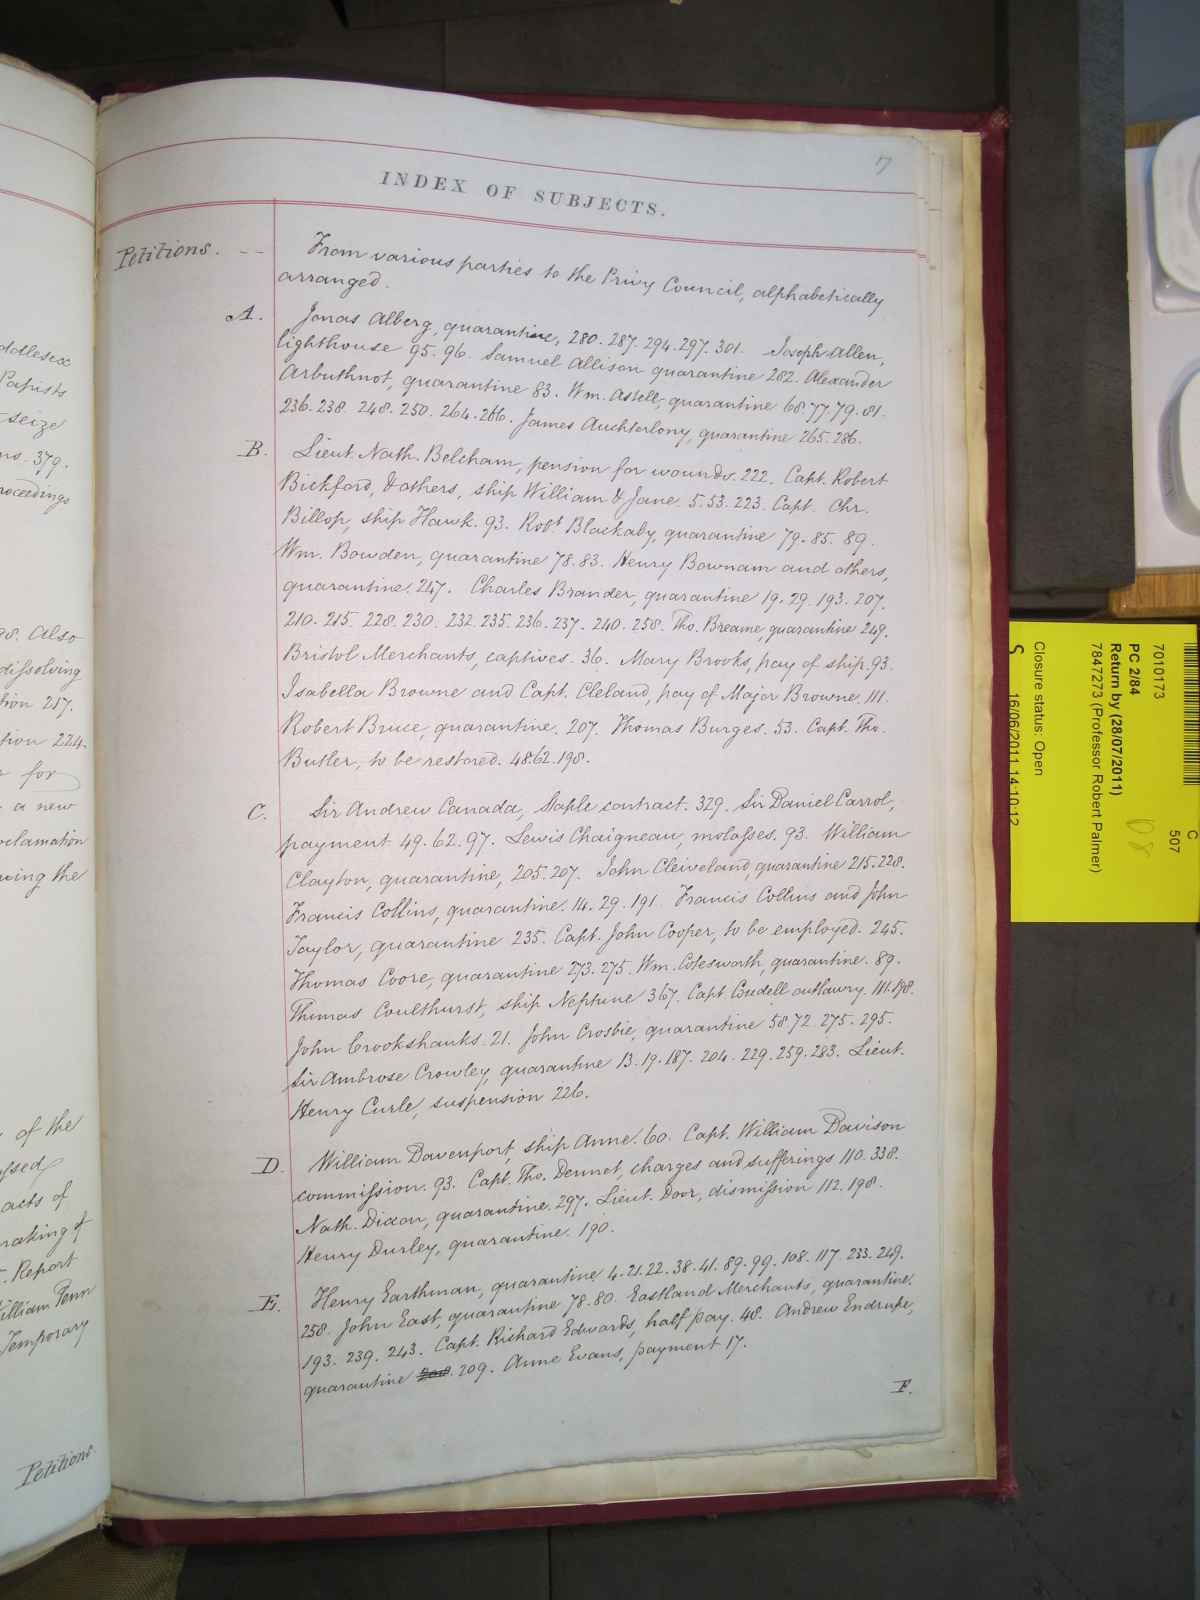 7
INDEX OF SUBJECTS.
Petitions. -- From various parties to the Privy Council, alphabetically
arranged.
A. Jonas Alberg, quarantine, 280. 287. 294. 297. 301. Joseph Allen,
lighthouse 95. 96. Samuel Allison quarantine 282. Alexander
Arbuthnot, quarantine 83. Wm. Astell, quarantine 68. 77. 79. 81.
236. 238. 248. 250. 264. 266. James Auchterlony, quarantine 265. 286.
B. Lieut. Nath. Belcham, pension for wounds. 222. Capt. Robert
Bickford, & others, ship William & Jane. 5. 53. 223. Capt. Chr.
Billop, ship Hawk. 93. Robt Blackaby, quarantine 79. 85. 89.
Wm. Bowden, quarantine 78. 83. Henry Bownam and others,
quarantine 247. Charles Brander, quarantine 19. 29. 193. 207.
210. 215. 228. 230. 232. 235. 236. 237. 240. 258. Tho. Breame, quarantine 249.
Bristol Merchants, captives. 36. Mary Brooks, pay of ship. 93.
Isabella Browne and Capt. Cleland, pay of Major Browne. 111.
Robert Bruce, quarantine. 207. Thomas Burges. 53. Capt. Tho.
Butler, to be restored. 48. 62. 198.
C. Sir Andrew Canada, Staple contract. 329. Sir Daniel Carrol,
payment 49. 62. 97. Lewis Chaigneau, molasses. 93. William
Clayton, quarantine, 205. 207. John Cleiveland, quarantine 215. 228.
Francis Collins, quarantine. 14. 29. 191. Francis Collins and John
Taylor, quarantine 235. Capt. John Cooper, to be employed. 245.
Thomas Coore, quarantine 273. 275. Wm. Cotesworth, quarantine. 89.
Thomas Coulthurst, ship Neptune 367. Capt. Coudell outlawry. 111. 198.
John Crookshanks. 21. John Crosbie, quarantine 58. 72. 275. 295.
Sir Ambrose Crowley, quarantine 13. 19. 187. 204. 229. 259. 283. Lieut.
Henry Curle, suspension 226.
D. William Davenport, ship Anne. 60. Capt. William Davison
commission. 93. Capt. Tho. Dennet, charges and sufferings 110. 338.
Nath. Dixon, quarantine. 297. Lieut. Door, dismission 112. 198.
Henry Durley, quarantine. 190.
E. Henry Earthman, quarantine 4. 21. 22. 38. 41. 89. 99. 108. 117. 233. 249.
258. John East, quarantine 78. 80. Eastland Merchants, quarantine.
193. 239. 243. Capt. Richard Edwards, half pay. 48. Andrew Endrupe,
quarantine 208. 209. Anne Evans, payment 17.
F.
ddlesex
Papists
seize
ns. 379.
roceedings
98. Also
dissolving
tion 217.
sion 224.
for
a new
oclamation
ing the
of the
ssed
acts of
making of
Report
illiam Penn
Temporary
Petitions.
7010173
PC 2/84
Return by (28/07/2011)
7847273 (Professor Robert Palmer)
Closure status: Open
S 16/06/2011 14:10:12
C
507
D8